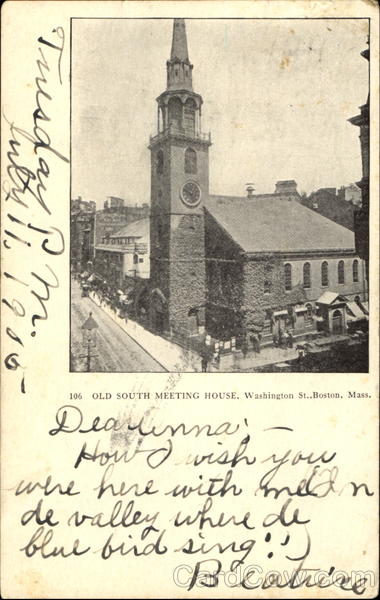 Tuesday P.M.
July 11. 1905
106 OLD SOUTH MEETING HOUSE, Washington St., Boston, Mass.
Dear Anna; —
How I wish you
were here with me! In
de valley where de
blue bird sing!!)
Beatrice
CardCow.com